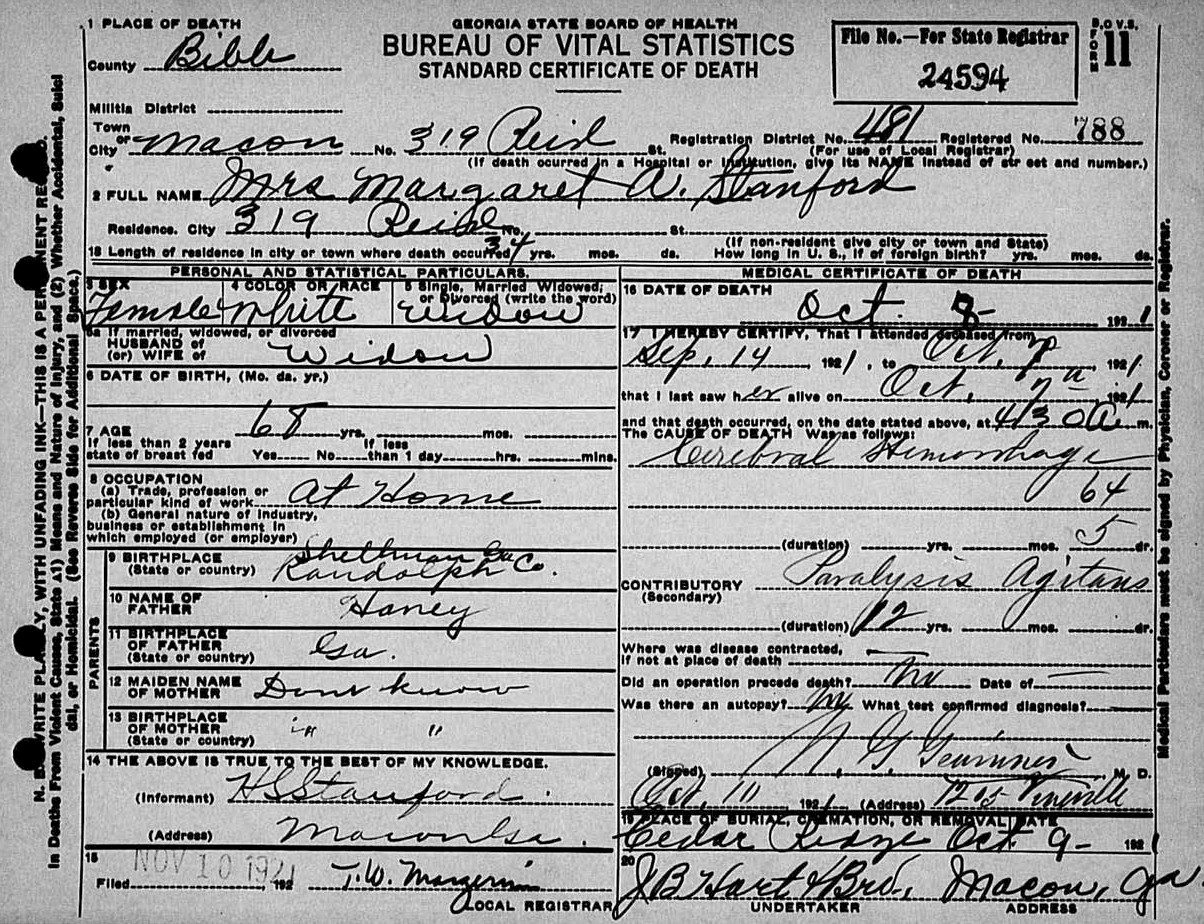 1 PLACE OF DEATH
County Bibb
GEORGIA STATE BOARD OF HEALTH
BUREAU OF VITAL STATISTICS
STANDARD CERTIFICATE OF DEATH
File No.—For State Registrar
24594
B.O.V.S.
FORM 11
Militia District
Town or City Macon No. 319 Reid St. Registration District No. 481 Registered No. 788
(For use of Local Registrar)
(If death ocurred in a Hospital or Institution, give its NAME instead of str eet and number.)
2 FULL NAME Mrs Margaret A. Stanford
Residence. City 319 Reid No. St.
(If non-resident give city or town and State)
18 Length of residence in city or town where death occurred 34 yrs. mos. ds. How long in U. S., if of foreign birth? yrs. mos. ds.
PERSONAL AND STATISTICAL PARTICULARS.
3 SEX
Female
4 COLOR OR RACE
White
5 Single, Married Widowed; or Divorced (write the word)
Widow
5a If married, widowed, or divorced
HUSBAND of
(or) WIFE of Widow
6 DATE OF BIRTH, (Mo. da. yr.)
7 AGE 68 yrs. mos. ds.
If less than 2 years If less
state of breast fed Yes No than 1 day hrs. mins.
8 OCCUPATION
(a) Trade, profession or
particular kind of work At Home
(b) General nature of Industry,
business or establishment in
which employed (or employer)
PARENTS
9 BIRTHPLACE Shellman Ga
(State or country) Randolph Co.
10 NAME OF
FATHER Haney
11 BIRTHPLACE
OF FATHER Ga.
(State or country)
12 MAIDEN NAME
OF MOTHER Dont know
13 BIRTHPLACE
OF MOTHER " "
(State or country)
14 THE ABOVE IS TRUE TO THE BEST OF MY KNOWLEDGE.
(Informant) H S Stanford.
(Address) Macon Ga.
15
NOV 10 1921
Filed 192 T.W.
LOCAL REGISTRAR
MEDICAL CERTIFICATE OF DEATH
16 DATE OF DEATH
Oct. 8 1921
17 I HEREBY CERTIFY, That I attended deceased from
Sep. 14 1921, to Oct. 7 1921
that I last saw her alive on Oct. 7th 1921
and that death occurred, on the date stated above, at 4/30 A. m.
The CAUSE OF DEATH Was as follows:
Cerebral Hemorrhage
64
(duration) yrs. mos. 5 dr.
CONTRIBUTORY Paralysis Agitans
(Secondary)
(duration) 12 yrs. mos. dr.
Where was disease contracted,
if not at place of death
Did an operation precede death? No Date of
Was there an autopay? No What test confirmed diagnosis?
(Signed) M. D.
Oct. 11 1921 (Address) Vineville
19 PLACE OF BURIAL, CREMATION, OR REMOVAL DATE
Cedar Ridge Oct 9 - 1921
20
J B Hart & Bro., Macon, Ga
UNDERTAKER ADDRESS
N. B. WRITE PLAINLY, WITH UNFADING INK—THIS IS A PERMANENT RECORD.
In Deaths From Violent Causes, State (1) Means and Nature of Injury, and (2) Whether Accidental, Suici
dal, or Homicidal. (See Reverse Side for Additional Space.)
Medical Particulars must be signed by Physician, Coroner or Registrar.